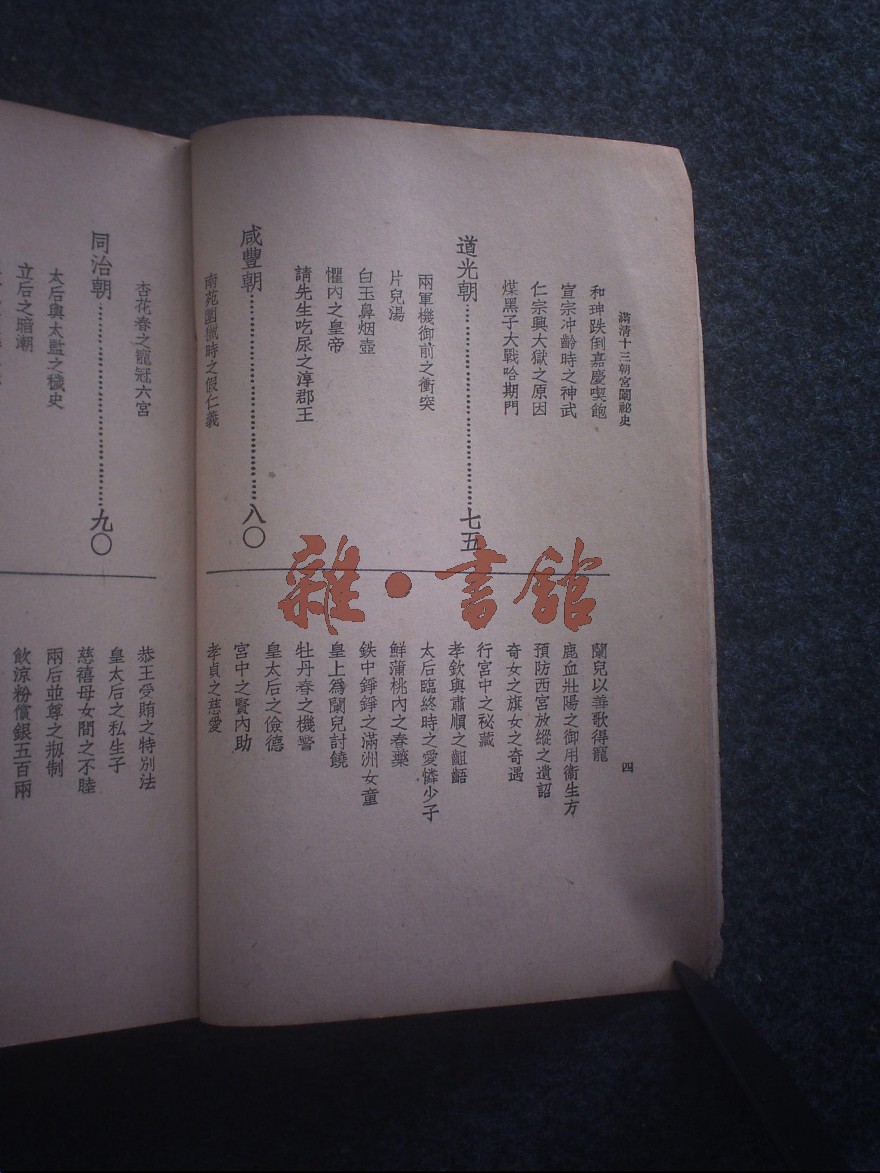 滿清十三朝宮闈祕史
和珅跌倒嘉慶喫飽
宣宗冲齡時之神武
仁宗興大獄之原因
煤黑子大戰哈期門
道光朝……七五
兩軍機御前之衝突
片兒湯
白玉鼻烟壺
懼內之皇帝
請先生吃尿之淳郡王
咸豐朝……八〇
南苑圍獵時之假仁義
四
蘭兒以善歌得寵
鹿血壯陽之御用衞生方
預防西宮放縱之遺詔
奇女之旗女之奇遇
行宮中之秘藏
孝欽與肅順之齟齬
太后臨終時之愛憐少子
鮮蒲桃內之春藥
鉄中錚錚之滿洲女童
皇上爲蘭兒討饒
牡丹春之機警
皇太后之儉德
宮中之賢內助
孝貞之慈愛
杏花春之寵冠六宮
同治朝……九〇
太后與太監之穢史
立后之暗潮
恭王受賄之特別法
皇太后之私生子
慈禧母女間之不睦
兩后並尊之剏制
飲涼粉償銀五百兩
雜·書館